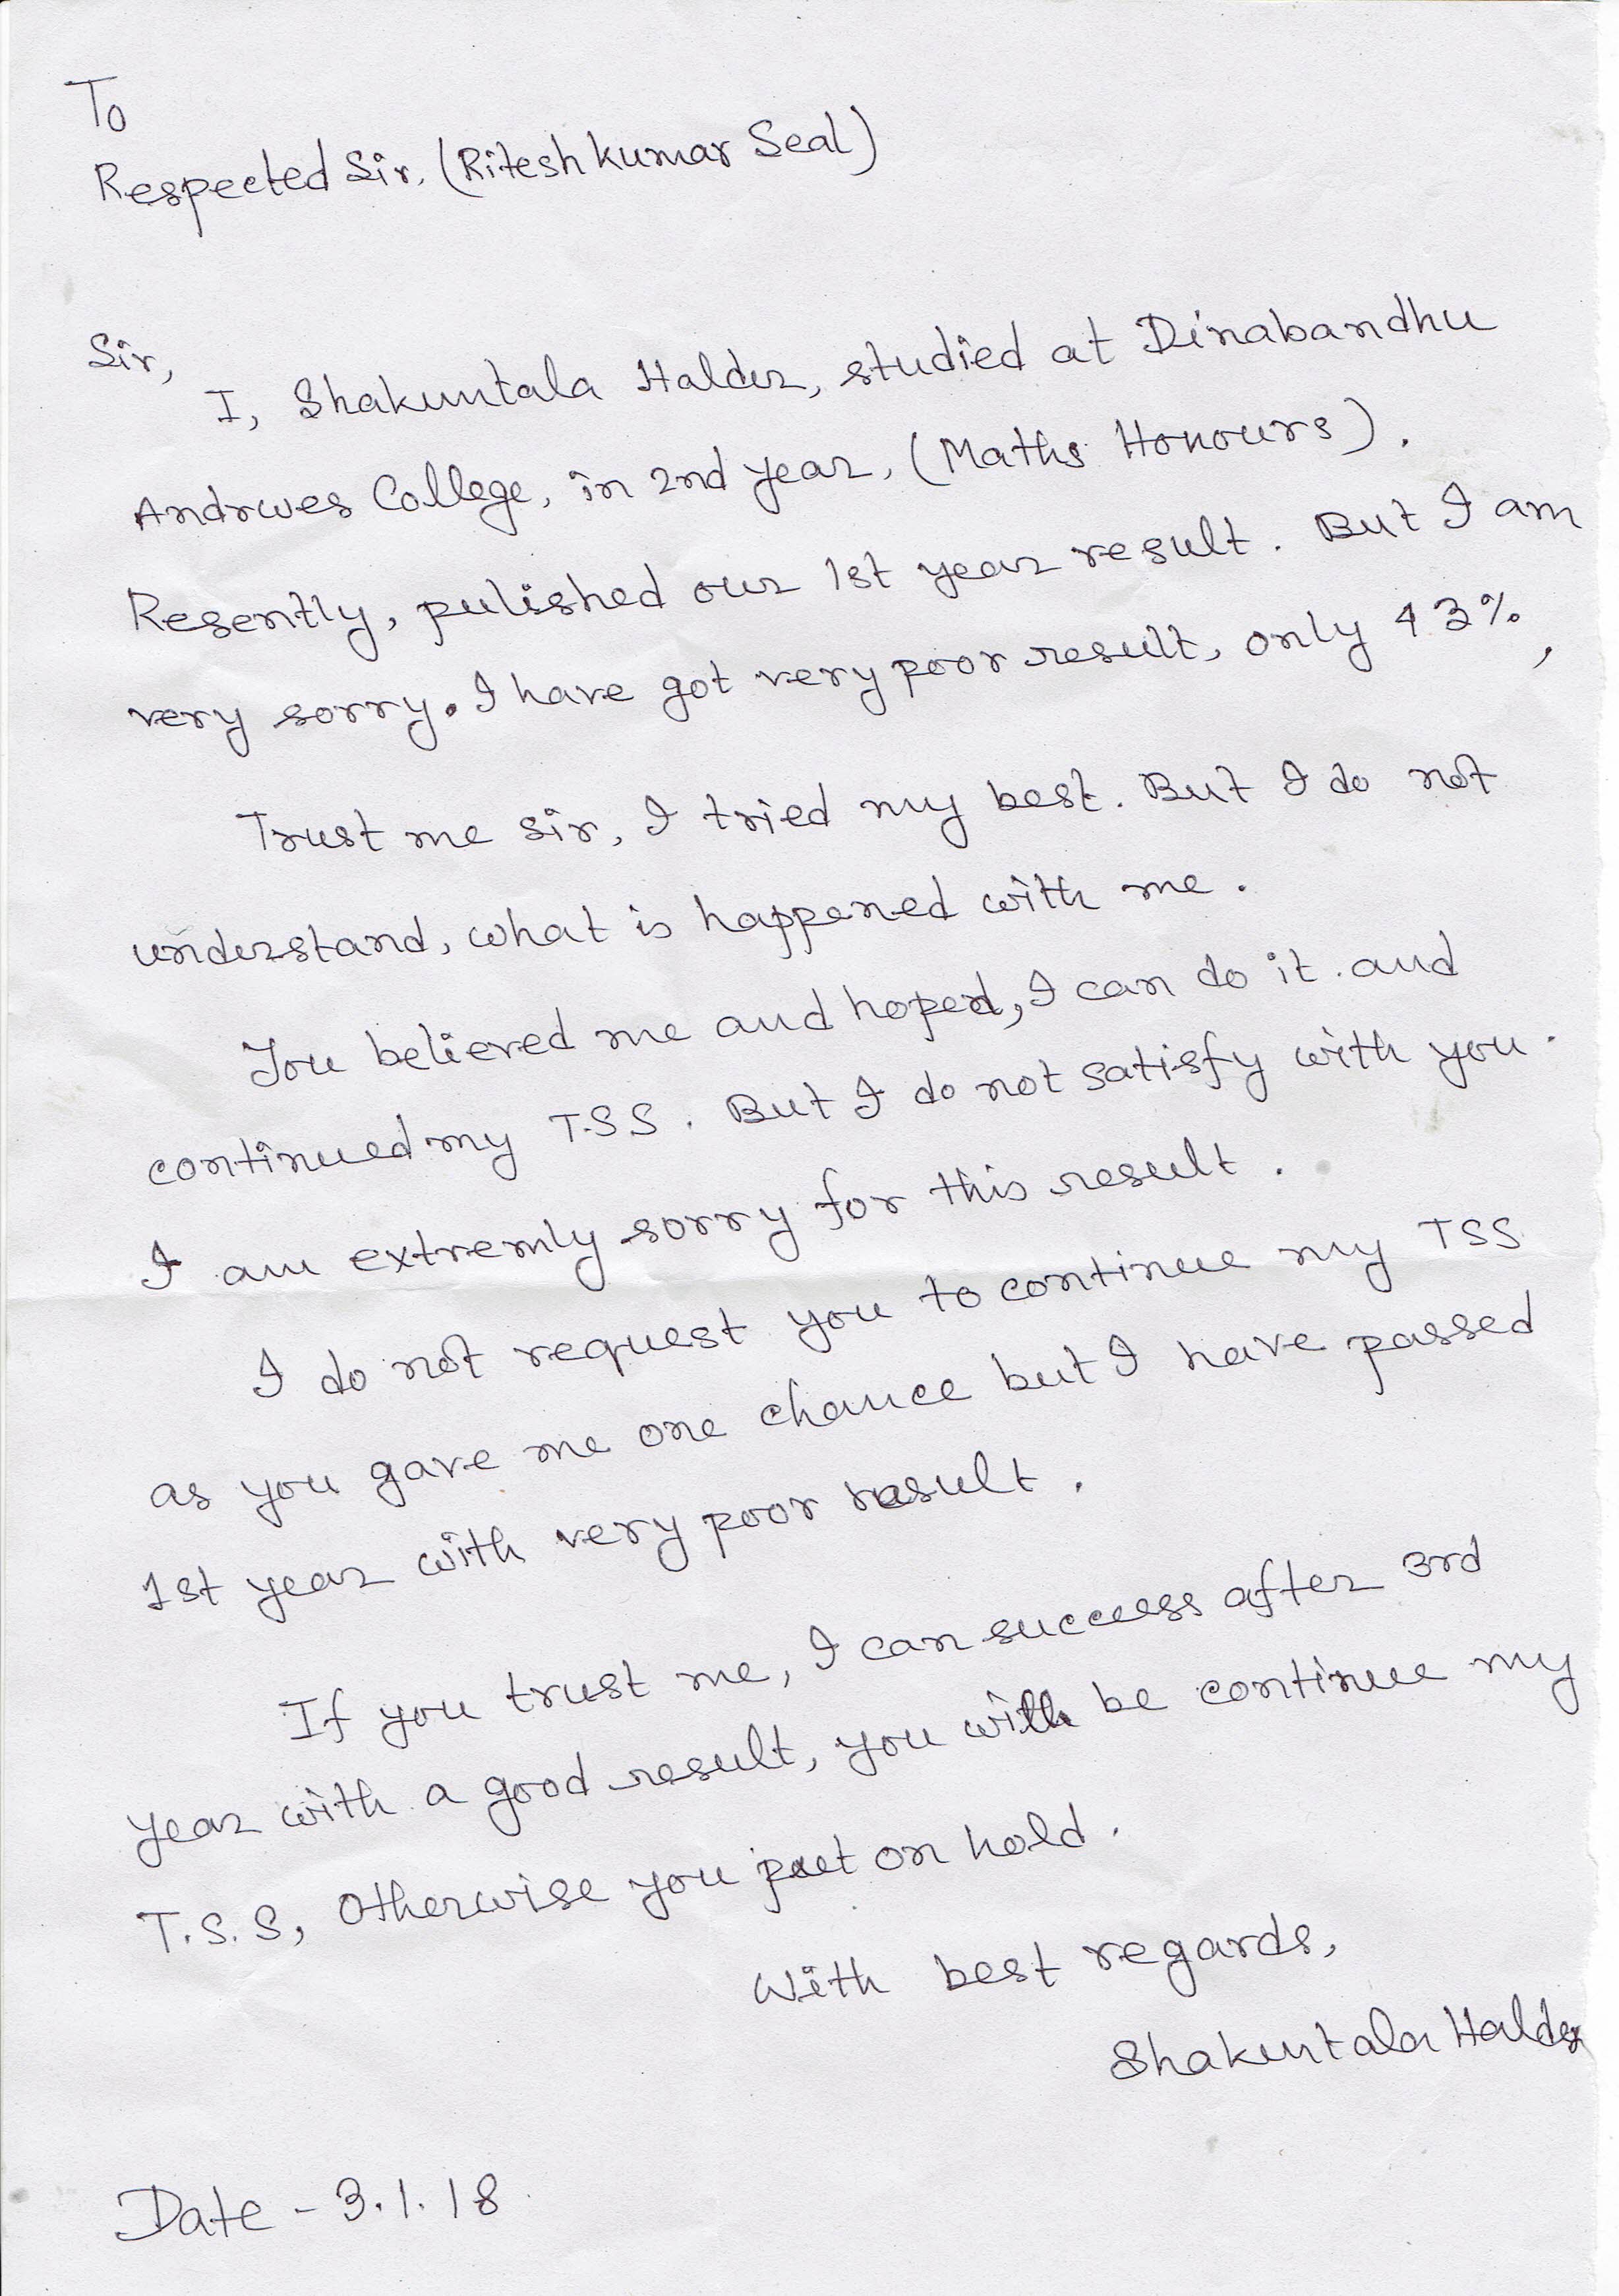 To
Respected Sir, (Ritesh Kumar Seal)
Sir,
I, Shakuntala Halder, studied at Dinabandhu
Andrwes College, in 2nd year, (Maths Honours).
Resently, pulished our 1st year result. But I am
very sorry. I have got very poor result, only 43%,
Trust me sir, I tried my best. But I do not
understand, what is happened with me.
You believed me and hoped, I can do it. and
continued my T.S.S. But I do not satisfy with you.
I am extremly sorry for this result.
I do not request you to continue my TSS
as you gave me one chance but I have passed
1st year with very poor result.
If you trust me, I can success after 3rd
year with a good result, you will be continue my
T.S.S, Otherwise you put on hold.
With best regards,
Shakuntala Halder
Date - 3.1.18